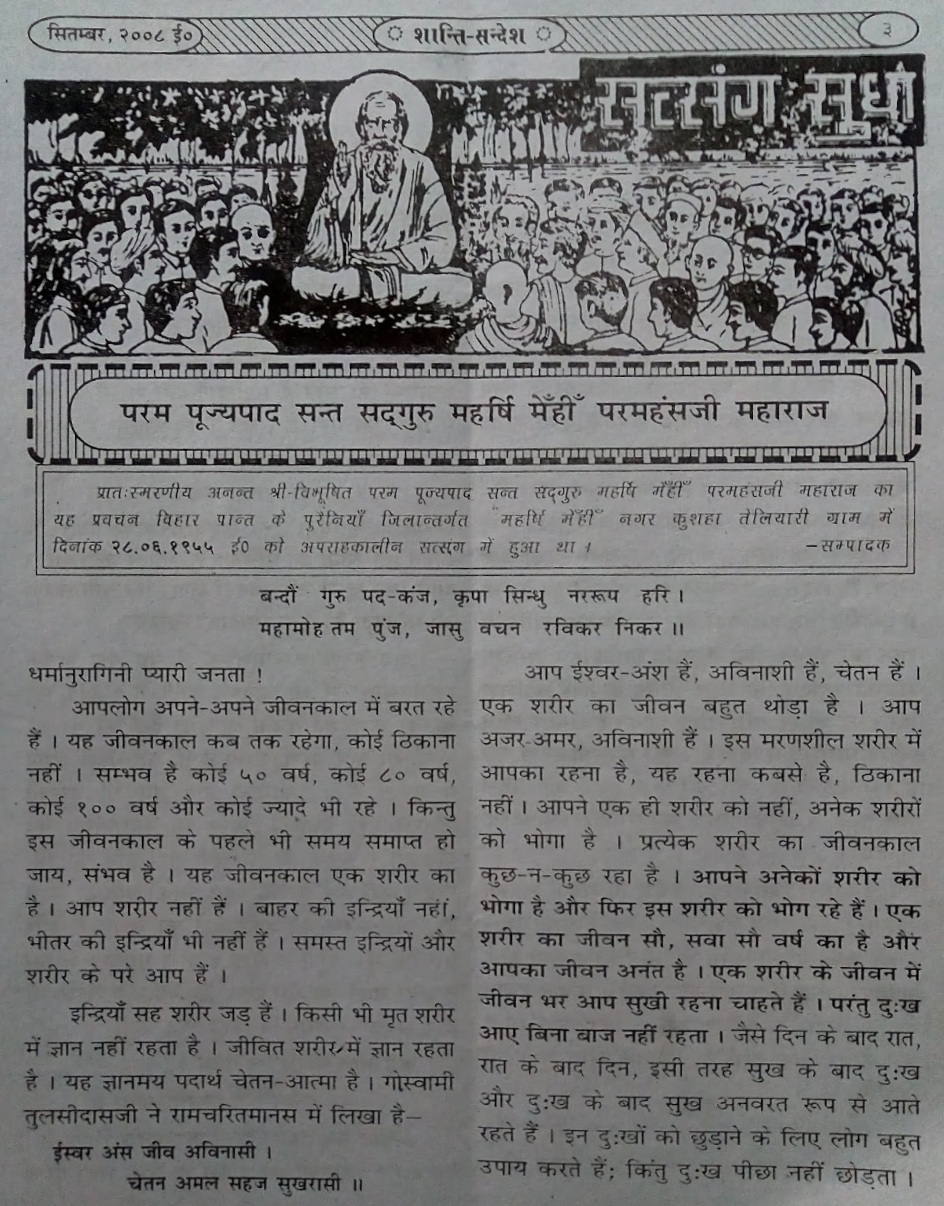 सितम्बर, २००८ ई०
शान्ति-सन्देश
३
सत्संग सुधा
परम पूज्यपाद सन्त सद्‌गुरु महर्षि मेँहीँ परमहंसजी महाराज
प्रातःस्मरणीय अनन्त श्री-विभूषित परम पूज्यपाद सन्त सद्‌गुरु महर्षि मेँहीँ परमहंसजी महाराज का
यह प्रवचन बिहार प्रान्त के पूरैनियाँ जिलान्तर्गत "महर्षि मेँहीँ" नगर कुशहा तेलियारी ग्राम में
दिनांक २८.०६.१९५५ ई0 को अपराह्नकालीन सत्संग में हुआ था । –सम्पादक
बन्दौं गुरु पद-कंज, कृपा सिन्धु नररूप हरि ।
महामोह तम पुंज, जासु वचन रविकर निकर ॥
धर्मानुरागिनी प्यारी जनता !
आपलोग अपने-अपने जीवनकाल में बरत रहे
हैं । यह जीवनकाल कब तक रहेगा, कोई ठिकाना
नहीं । सम्भव है कोई ५० वर्ष, कोई ८० वर्ष,
कोई १०० वर्ष और कोई ज्यादे भी रहे । किन्तु
इस जीवनकाल के पहले भी समय समाप्त हो
जाय, संभव है । यह जीवनकाल एक शरीर का
है । आप शरीर नहीं हैं । बाहर की इन्द्रियाँ नहीं,
भीतर की इन्द्रियाँ भी नहीं हैं । समस्त इन्द्रियों और
शरीर के परे आप हैं ।
इन्द्रियाँ सह शरीर जड़ हैं । किसी भी मृत शरीर
में ज्ञान नहीं रहता है । जीवित शरीर में ज्ञान रहता
है । यह ज्ञानमय पदार्थ चेतन-आत्मा है । गोस्वामी
तुलसीदासजी ने रामचरितमानस में लिखा है–
ईस्वर अंस जीव अविनासी ।
चेतन अमल सहज सुखरासी ॥
आप ईश्वर-अंश हैं, अविनाशी हैं, चेतन हैं ।
एक शरीर का जीवन बहुत थोड़ा है । आप
अजर-अमर, अविनाशी हैं । इस मरणशील शरीर में
आपका रहना है, यह रहना कबसे है, ठिकाना
नहीं । आपने एक ही शरीर को नहीं, अनेक शरीरों
को भोगा है । प्रत्येक शरीर का जीवनकाल
कुछ-न-कुछ रहा है । आपने अनेकों शरीर को
भोगा है और फिर इस शरीर को भोग रहे हैं । एक
शरीर का जीवन सौ, सवा सौ वर्ष का है और
आपका जीवन अनंत है । एक शरीर के जीवन में
जीवन भर आप सुखी रहना चाहते हैं । परंतु दुःख
आए बिना बाज नहीं रहता । जैसे दिन के बाद रात,
रात के बाद दिन, इसी तरह सुख के बाद दुःख
और दुःख के बाद सुख अनवरत रूप से आते
रहते हैं । इन दुःखों को छुड़ाने के लिए लोग बहुत
उपाय करते हैं; किंतु दुःख पीछा नहीं छोड़ता ।